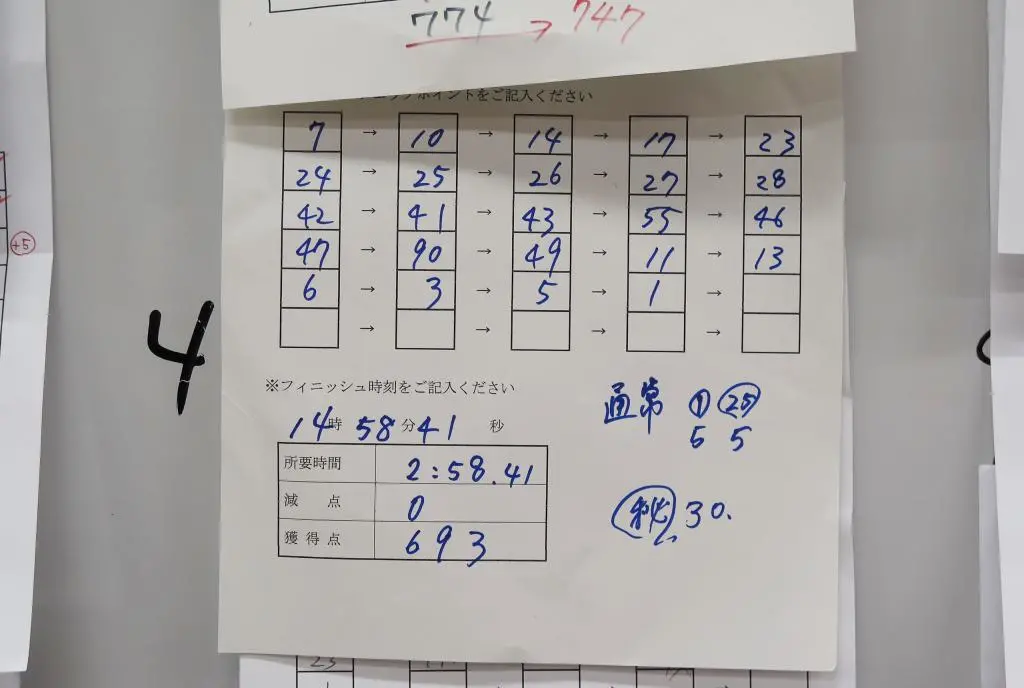 774 → 747
ックポイントをご記入ください
7 → 10 → 14 → 17 → 23
24 → 25 → 26 → 27 → 28
42 → 41 → 43 → 55 → 46
47 → 90 → 49 → 11 → 13
6 → 3 → 5 → 1 →
→ → → →
+5
4
※フィニッシュ時刻をご記入ください
14時 58分 41 秒
通常 ① ㉕
5 5
所要時間 2:58.41
減 点 0
獲得点 693
㊙ 30.
23